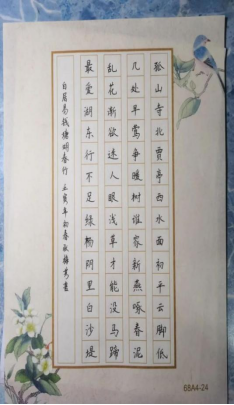 孤山寺北贾亭西水面初平云脚低
几处早莺争暖树谁家新燕啄春泥
乱花渐欲迷人眼浅草才能没马蹄
最爱湖东行不足绿杨阴里白沙堤
白居易钱塘湖春行 壬寅年初春
68A4-24